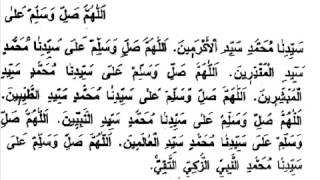 اَللّٰهُمَّ صَلِّ وَسَلِّمْ عَلٰى
سَيِّدِنَا مُحَمَّدٍ سَيِّدِ الْأَكْرَمِينَ. اَللّٰهُمَّ صَلِّ وَسَلِّمْ عَلٰى سَيِّدِنَا مُحَمَّدٍ
سَيِّدِ الْمُنْذِرِينَ. اَللّٰهُمَّ صَلِّ وَسَلِّمْ عَلٰى سَيِّدِنَا مُحَمَّدٍ سَيِّدِ
الْمُبَشِّرِينَ. اَللّٰهُمَّ صَلِّ وَسَلِّمْ عَلٰى سَيِّدِنَا مُحَمَّدٍ سَيِّدِ الطَّيِّبِينَ.
اَللّٰهُمَّ صَلِّ وَسَلِّمْ عَلٰى سَيِّدِنَا مُحَمَّدٍ سَيِّدِ النَّبِيِّينَ. اَللّٰهُمَّ صَلِّ
وَسَلِّمْ عَلٰى سَيِّدِنَا مُحَمَّدٍ سَيِّدِ الْعَالَمِينَ. اَللّٰهُمَّ صَلِّ وَسَلِّمْ عَلٰى
سَيِّدِنَا مُحَمَّدٍ النَّبِيِّ الزَّكِيِّ التَّقِيِّ.